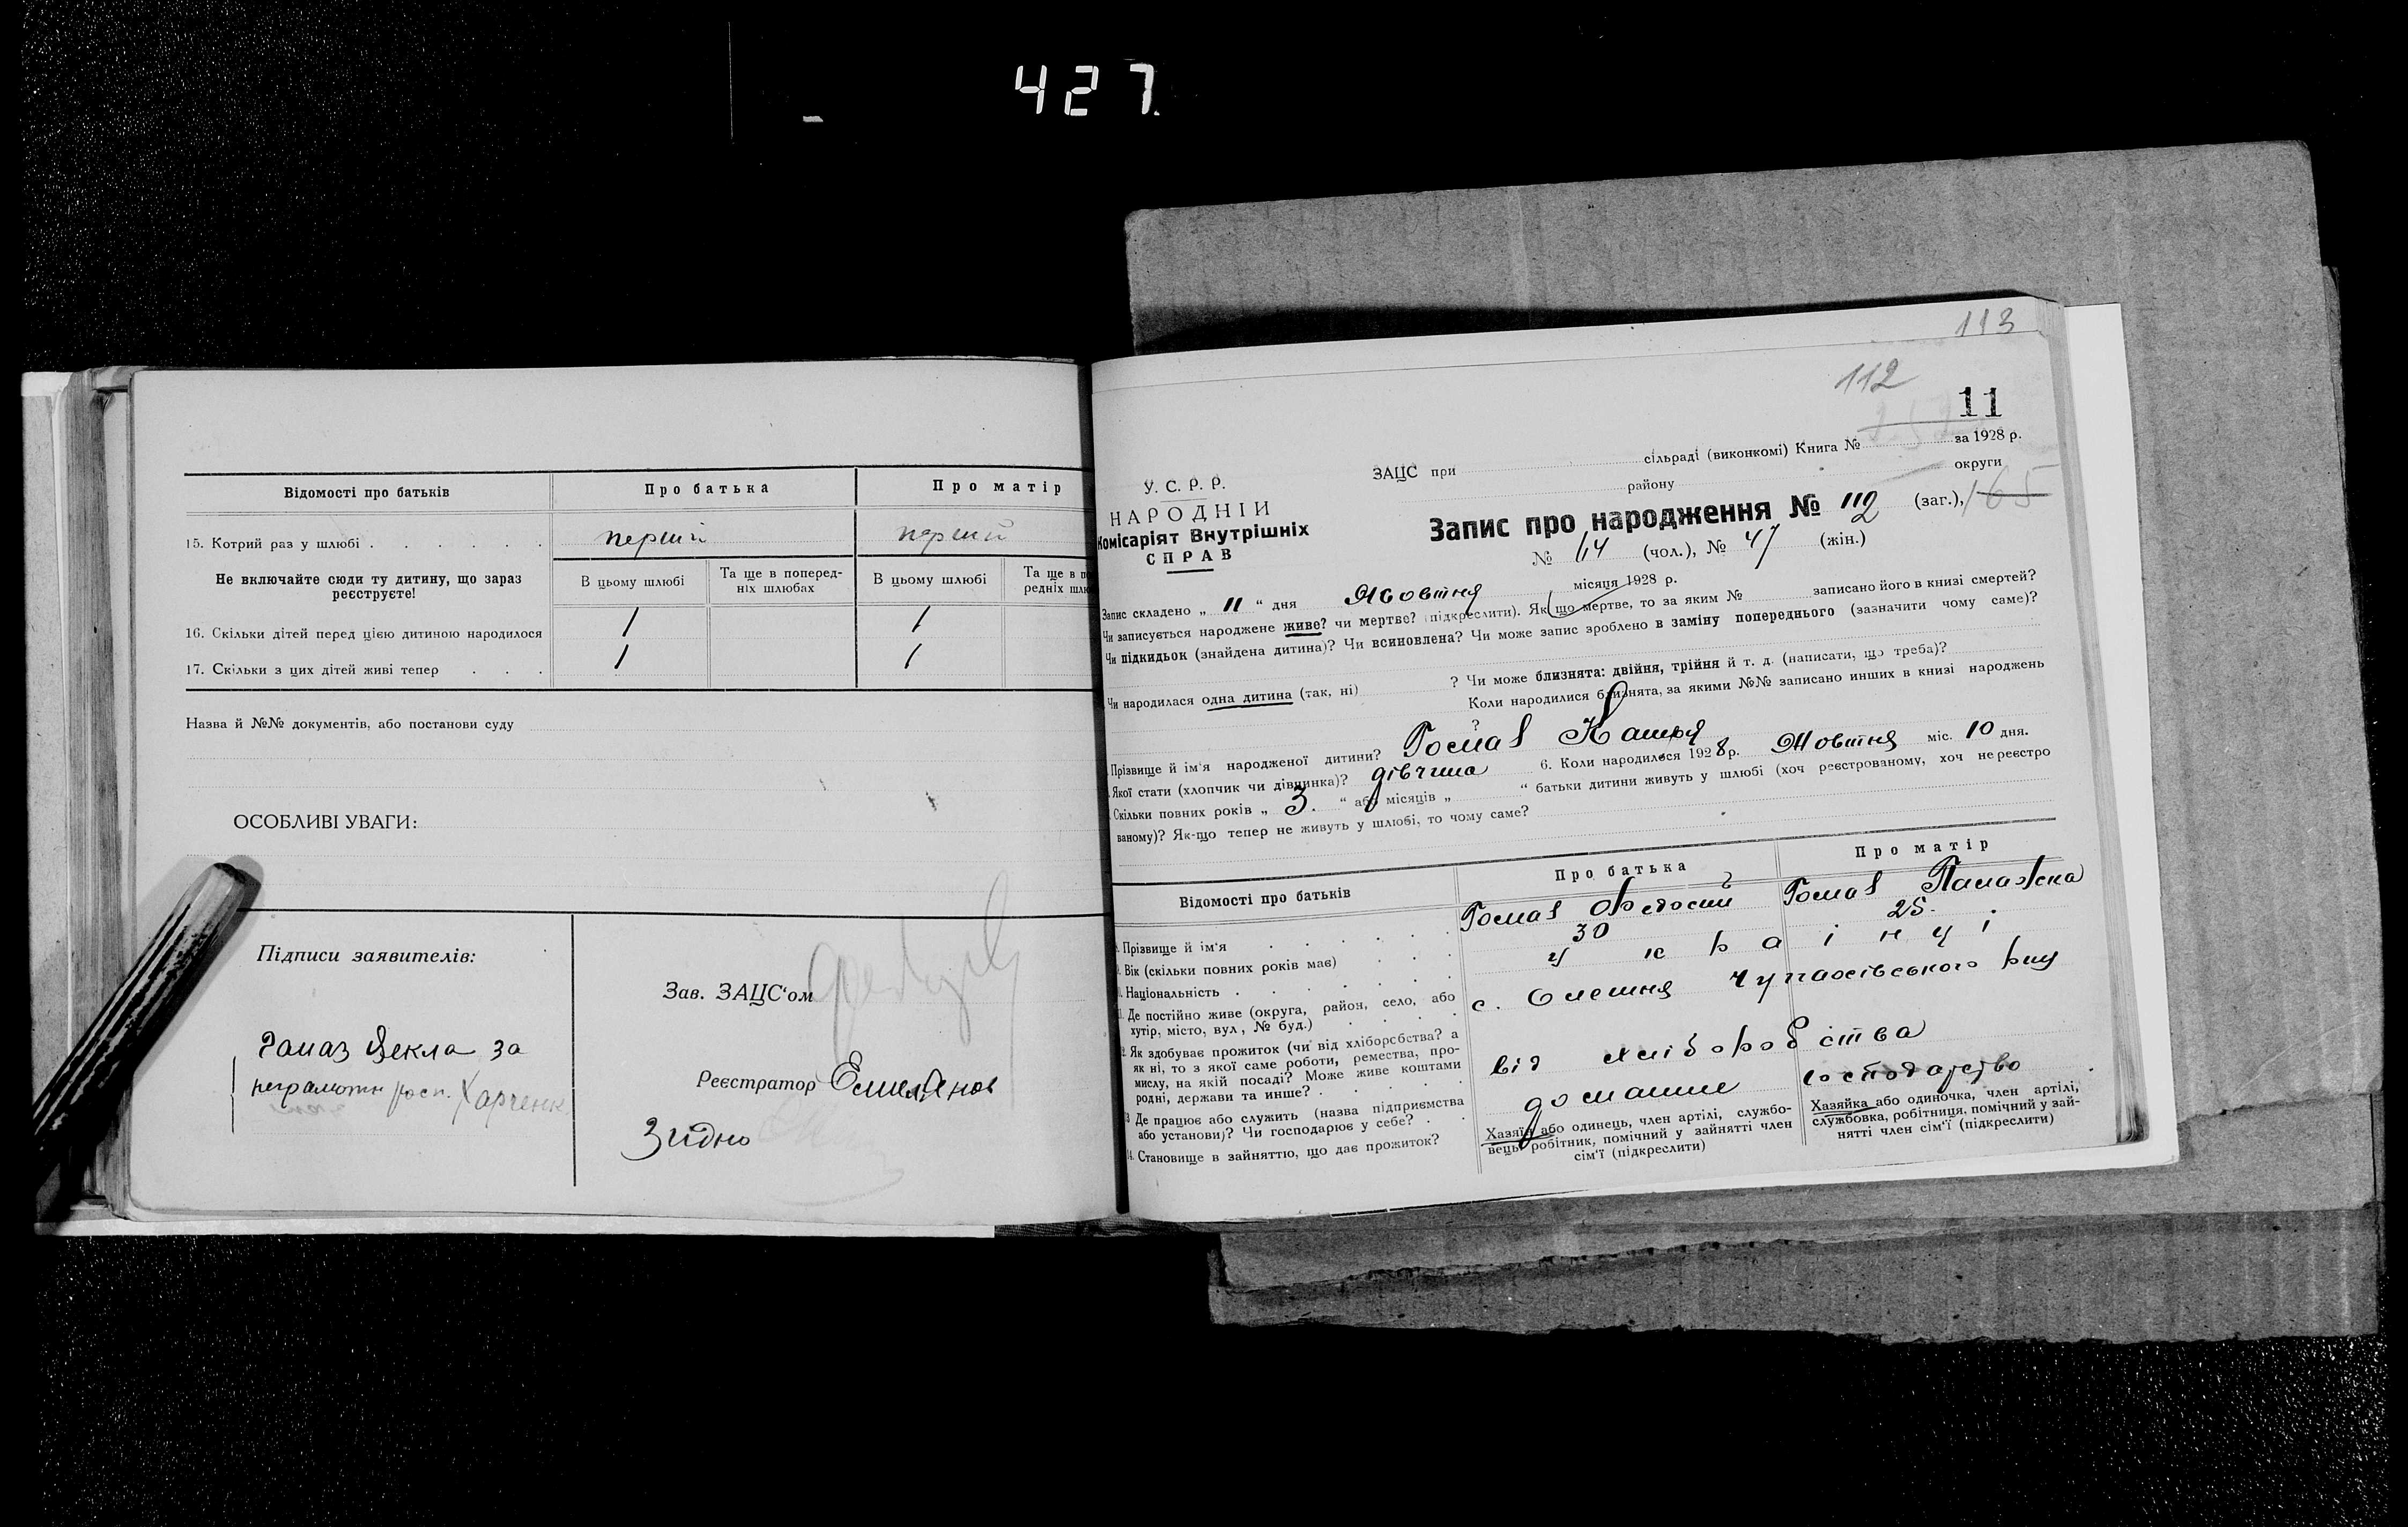 427.
Відомості про батьків
Про батька
Про матір
15. Котрий раз у шлюбі
першій
першій
Не включайте сюди ту дитину, що зараз
реєструєте!
В цьому шлюбі
Та ще в поперед-
ніх шлюбах
В цьому шлюбі
Та ще в по
редніх шлю
16. Скільки дітей перед цією дитиною народилося
1
1
17. Скільки з цих дітей живі тепер
1
1
Назва й №№ документів, або постанови суду
ОСОБЛИВІ УВАГИ:
Підписи заявителів:
Гамаз Векла за
неграмотн росп. Харченк
Зав. ЗАЦС'ом
Реєстратор Емельянов
Згідно
113
112
11
У. С. Р. Р.
НАРОДНІЙ
Комісаріят Внутрішніх
СПРАВ
ЗАЦС при сільраді (виконкомі) Книга № за 1928 р.
району округи
Запис про народження № 112 (заг.), 165
№ 64 (чол.), № 47 (жін.)
Запис складено „ 11 “ дня Жовтня місяця 1928 р.
Чи записується народжене живе? чи мертве? (підкреслити). Як що мертве, то за яким № записано його в книзі смертей?
Чи підкидьок (знайдена дитина)? Чи всиновлена? Чи може запис зроблено в заміну попереднього (зазначити чому саме)?
Чи народилася одна дитина (так, ні) ? Чи може близнята: двійня, трійня й т. д. (написати, що треба)?
Коли народилися близнята, за якими №№ записано инших в книзі народжень
?
Прізвище й ім'я народженої дитини?
Якої стати (хлопчик чи дівчинка)? дівчина 6. Коли народилася 1928 р. Жовтня міс. 10 дня.
Скільки повних років „ 3. “ або місяців „ “ батьки дитини живуть у шлюбі (хоч реєстрованому, хоч нереєстро
ваному)? Як-що тепер не живуть у шлюбі, то чому саме?
Відомості про батьків
Про батька
Про матір
Прізвище й ім'я
Федосий
Вік (скільки повних років має)
30
25.
Національність
українці
Де постійно живе (округа, район, село, або
хутір, місто, вул, № буд.)
с. Олешня Чупахівського рну
Як здобуває прожиток (чи від хліборобства? а
як ні, то з якої саме роботи, ремества, про-
мислу, на якій посаді? Може живе коштами
родні, держави та инше?
від хліборобства
13 Де працює або служить (назва підприємства
або установи)? Чи господарює у себе?
домашне господарство
14. Становище в зайняттю, що дає прожиток?
Хазяїн або одинець, член артілі, службо-
вець, робітник, помічний у зайнятті член
сім'ї (підкреслити)
Хазяйка або одиночка, член артілі,
службовка, робітниця, помічний у зай-
нятті член сім'ї (підкреслити)